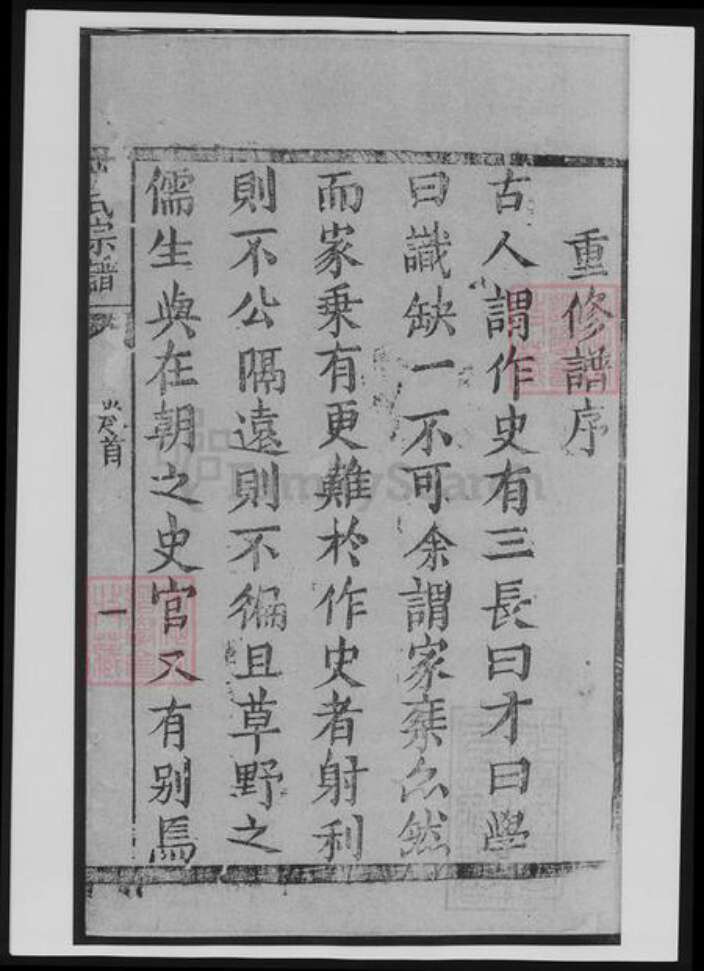 重修譜序
古人謂作史有三長曰才曰學
曰識缺一不可余謂家乗亦然
而家乘有更難於作史者射利
則不公隔遠則不徧且草野之
儒生與在朝之史官又有别焉
氏宗譜
卷首
一
FamilySearch